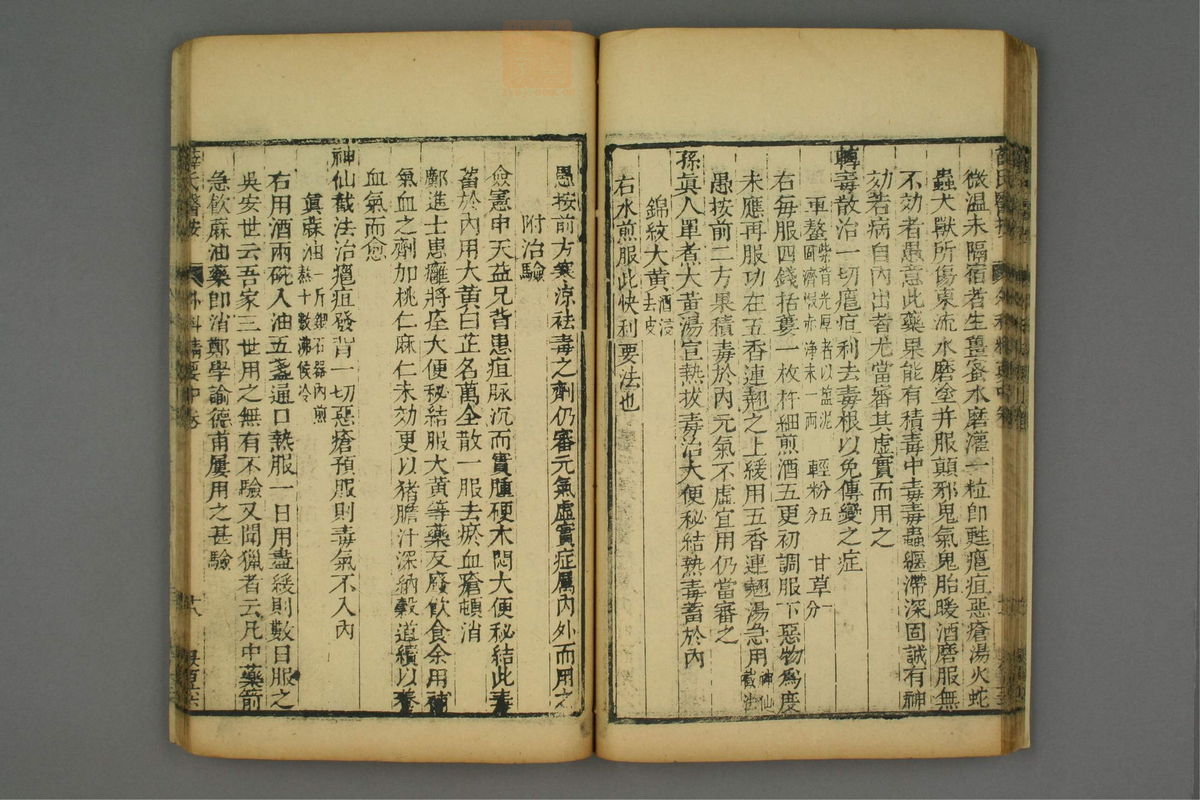 微温未隔宿者生蘁蚤水磨灌一粒即甦癰疽惡瘡湯火蛇
蟲犬獸所傷東流水磨塗并服顛邪鬼氣鬼胎暖酒磨服無
不効者愚意此藥果能有積毒中毒毒蟲纏滯深固誠有神
効若病自內出者尤當審其虛實而用之
轉毒散治一切癰疽利去毒根以免傳變之症
車螯紫背光厚者以盐泥固濟煨赤净末一兩 輕粉五分 甘草一分
右每服四錢括蔞一枚杵細煎酒五更初調服下惡物為度
未應再服功在五香連翹之上緩用五香連翹湯急用神仙截法
愚按前二方果積毒於內元氣不虛宜用仍當審之
孫眞人單煮大黃湯宣熱拔毒治大便秘結熱毒蓄於內
錦紋大黃酒浸去皮
右水煎服此快利要法也
愚按前方寒涼袪毒之劑仍審元氣虛實症屬內外而用之
附治驗
僉憲申天益兄背患疽脉沉而實腫硬木悶大便秘結此毒
蓄於內用大黃白芷名萬全散一服去瘀血瘡頓消
鄺進士患癰將痊大便秘結服大黃等藥反廢飲食余用補
氣血之劑加桃仁麻仁未効更以猪膽汁深納穀道續以養
血氣而愈
神仙截法治癰疽發背一切惡瘡預服則毒氣不入內
眞蔴油一斤銀石器內煎熬十數沸候冷
右用酒兩碗入油五盞通口熱服一日用盡緩則數日服之
吳安世云吾家三世用之無有不驗又聞獵者云凡中藥箭
急飲蔴油藥即消鄭學諭德甫屢用之甚驗
薛氏醫按 外科精要中卷 廿八